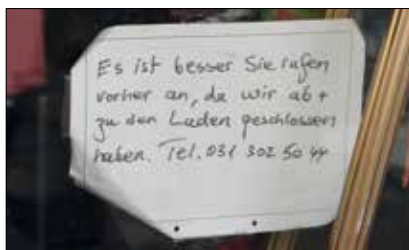 Es ist besser Sie rufen
vorher an, da wir ab +
zu den Laden geschlossen
haben. Tel. 031 302 50 44